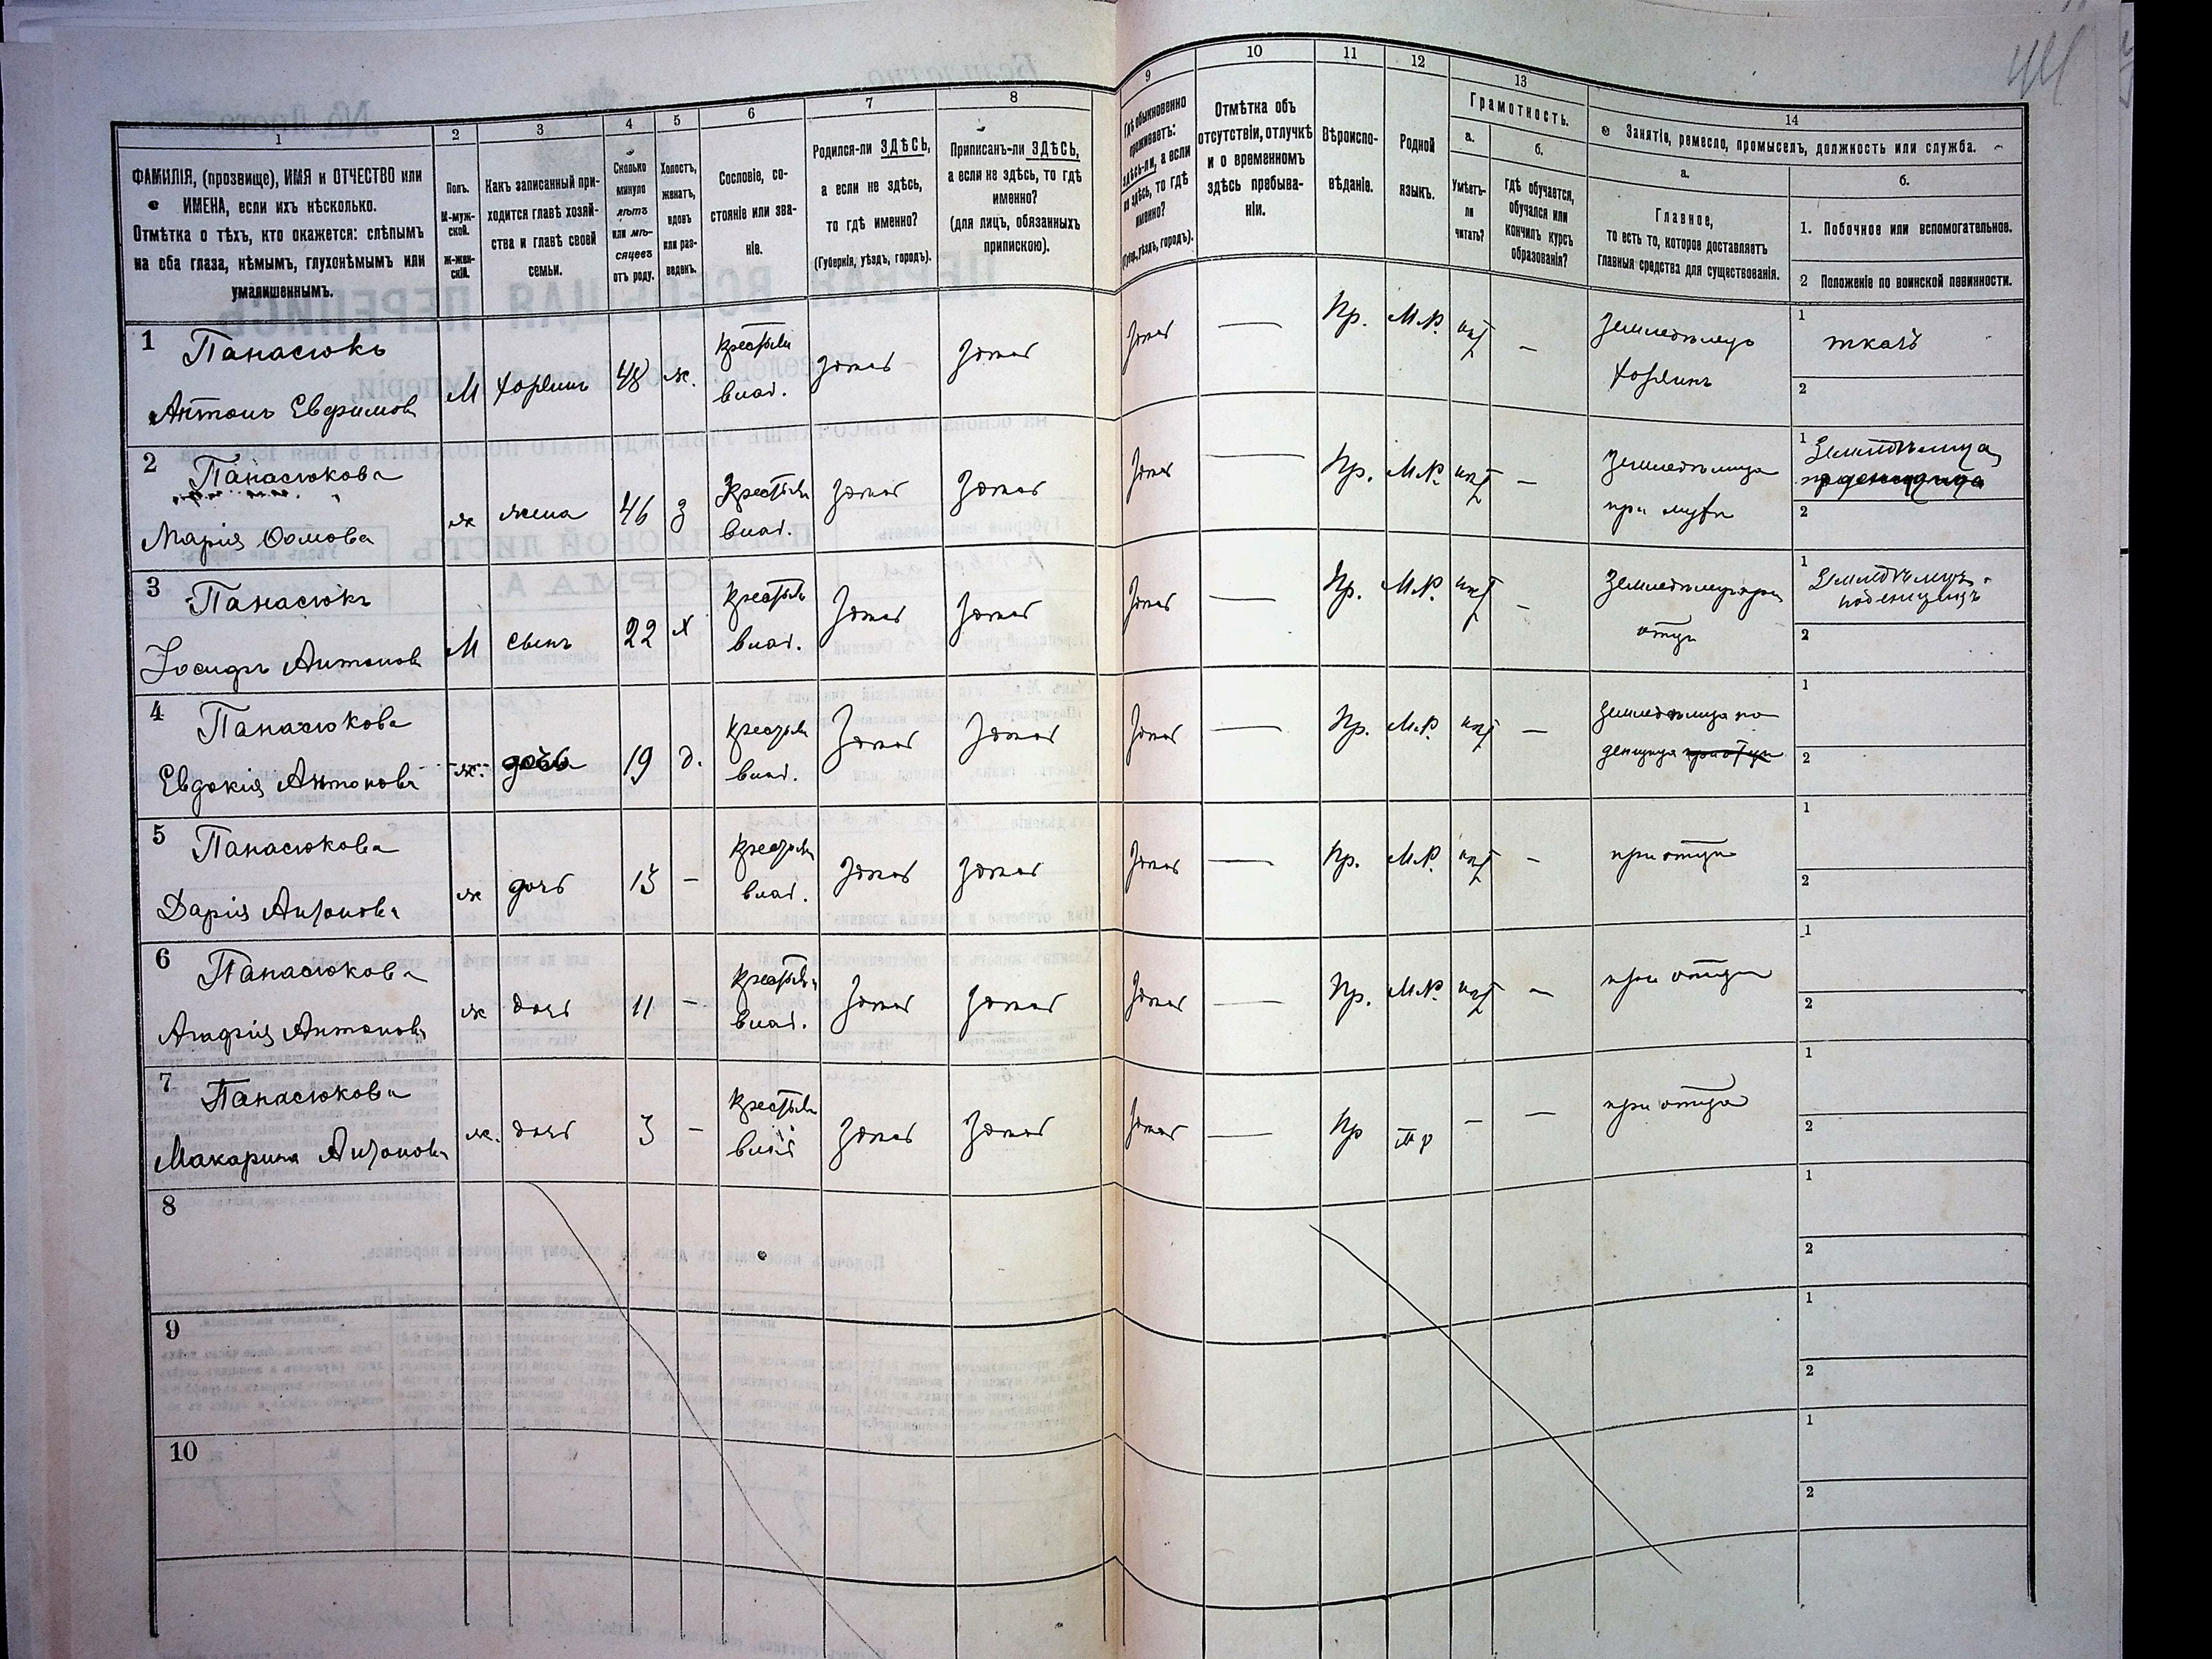 44
1
2
3
4
5
6
7
8
9
10
11
12
13
14
ФАМИЛІЯ, (прозвище), ИМЯ и ОТЧЕСТВО или
ИМЕНА, если ихъ нѣсколько.
Отмѣтка о тѣхъ, кто окажется: слѣпымъ
на оба глаза, нѣмымъ, глухонѣмымъ или
умалишеннымъ.
Полъ.
М-муж-
ской.
ж-жен-
скій.
Какъ записанный при-
ходится главѣ хозяй-
ства и главѣ своей
семьи.
Сколько
минуло
лѣтъ
или мѣ-
сяцевъ
отъ роду.
Холостъ,
женатъ,
вдовъ
или раз-
веденъ.
Сословіе, со-
стояніе или зва-
ніе.
Родился-ли ЗДѢСЬ,
а если не здѣсь,
то гдѣ именно?
(Губернія, уѣздъ, городъ).
Приписанъ-ли ЗДѢСЬ,
а если не здѣсь, то гдѣ
именно?
(для лицъ, обязанныхъ
припискою).
Гдѣ обыкновенно
проживаетъ:
здѣсь-ли, а если
не здѣсь, то гдѣ
именно?
(Губ., уѣздъ, городъ).
Отмѣтка объ
отсутствіи, отлучкѣ
и о временномъ
здѣсь пребыва-
ніи.
Вѣроиспо-
вѣданіе.
Родной
языкъ.
Грамотность.
а.
Умѣетъ-
ли
читать?
б.
гдѣ обучается,
обучался или
кончилъ курсъ
образованія?
Занятіе, ремесло, промыселъ, должность или служба.
а.
Главное,
то есть то, которое доставляетъ
главныя средства для существованія.
б.
1. Побочное или вспомогательное.
2 Положеніе по воинской повинности.
1
Панасюкъ
Антонъ Евфимовъ
М
хозяинъ
48
ж.
крестьян
влад.
здѣсь
здѣсь
здѣсь
—
Пр.
М.Р.
нѣт
—
земледѣлецъ
хозяинъ
1
ткачъ
2
2
Панасюкова
Марія Фомова
ж
жена
46
з
крестьян
влад.
здѣсь
здѣсь
здѣсь
—
Пр.
М.Р.
нѣт
—
земледѣлица
при мужѣ
1
Земледѣлица
поденщица
2
3
Панасюкъ
Іосифъ Антонов
М
сынъ
22
х
крестьян
влад.
здѣсь
здѣсь
здѣсь
—
Пр.
М.Р.
нѣт
—
земледѣлецъ при
отцѣ
1
Земледѣлецъ
поденщикъ
2
4
Панасюкова
Евдокія Антонова
ж.
дочь
19
д.
крестьян
влад.
здѣсь
здѣсь
здѣсь
—
Пр.
М.Р.
нѣт
—
земледѣлица по
денщица при отцѣ
1
2
5
Панасюкова
Дарія Антонова
ж
дочь
15
—
крестьян
влад.
здѣсь
здѣсь
здѣсь
—
Пр.
М.Р.
нѣт
—
при отцѣ
1
2
6
Панасюкова
Агафія Антонова
ж
дочь
11
—
крестьян
влад.
здѣсь
здѣсь
здѣсь
—
Пр.
М.Р.
нѣт
—
при отцѣ
1
2
7
Панасюкова
Макарина Антонова
ж.
дочь
3
—
крестьян
влад
здѣсь
здѣсь
здѣсь
—
Пр
мр
—
—
при отцѣ
1
2
8
1
2
9
1
2
10
1
2